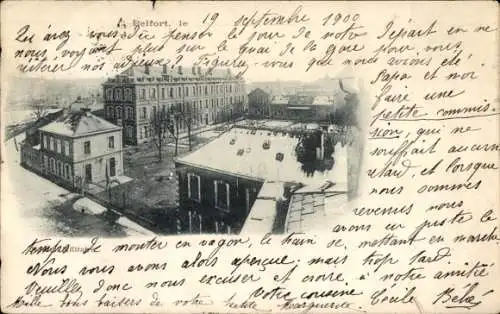 A Belfort, le 19 septembre 1900
Qu'avez vous dû penser le jour de notre départ en ne
nous voyant plus sur le quai de la gare pour vous
réitérer nos adieux
que nous avons été
Papa et moi
faire une
petite commission,
qui ne
souffrait
aucun retard,
et lorsque
nous sommes
revenus nous
avons eu juste le
temps de monter en wagon, le train se mettant en marche
Nous vous avons alors aperçue; mais trop tard.
Veuillez donc nous excuser et croire à notre amitié
Votre cousine Cécile
Mille bons baisers de votre petite Marguerite.